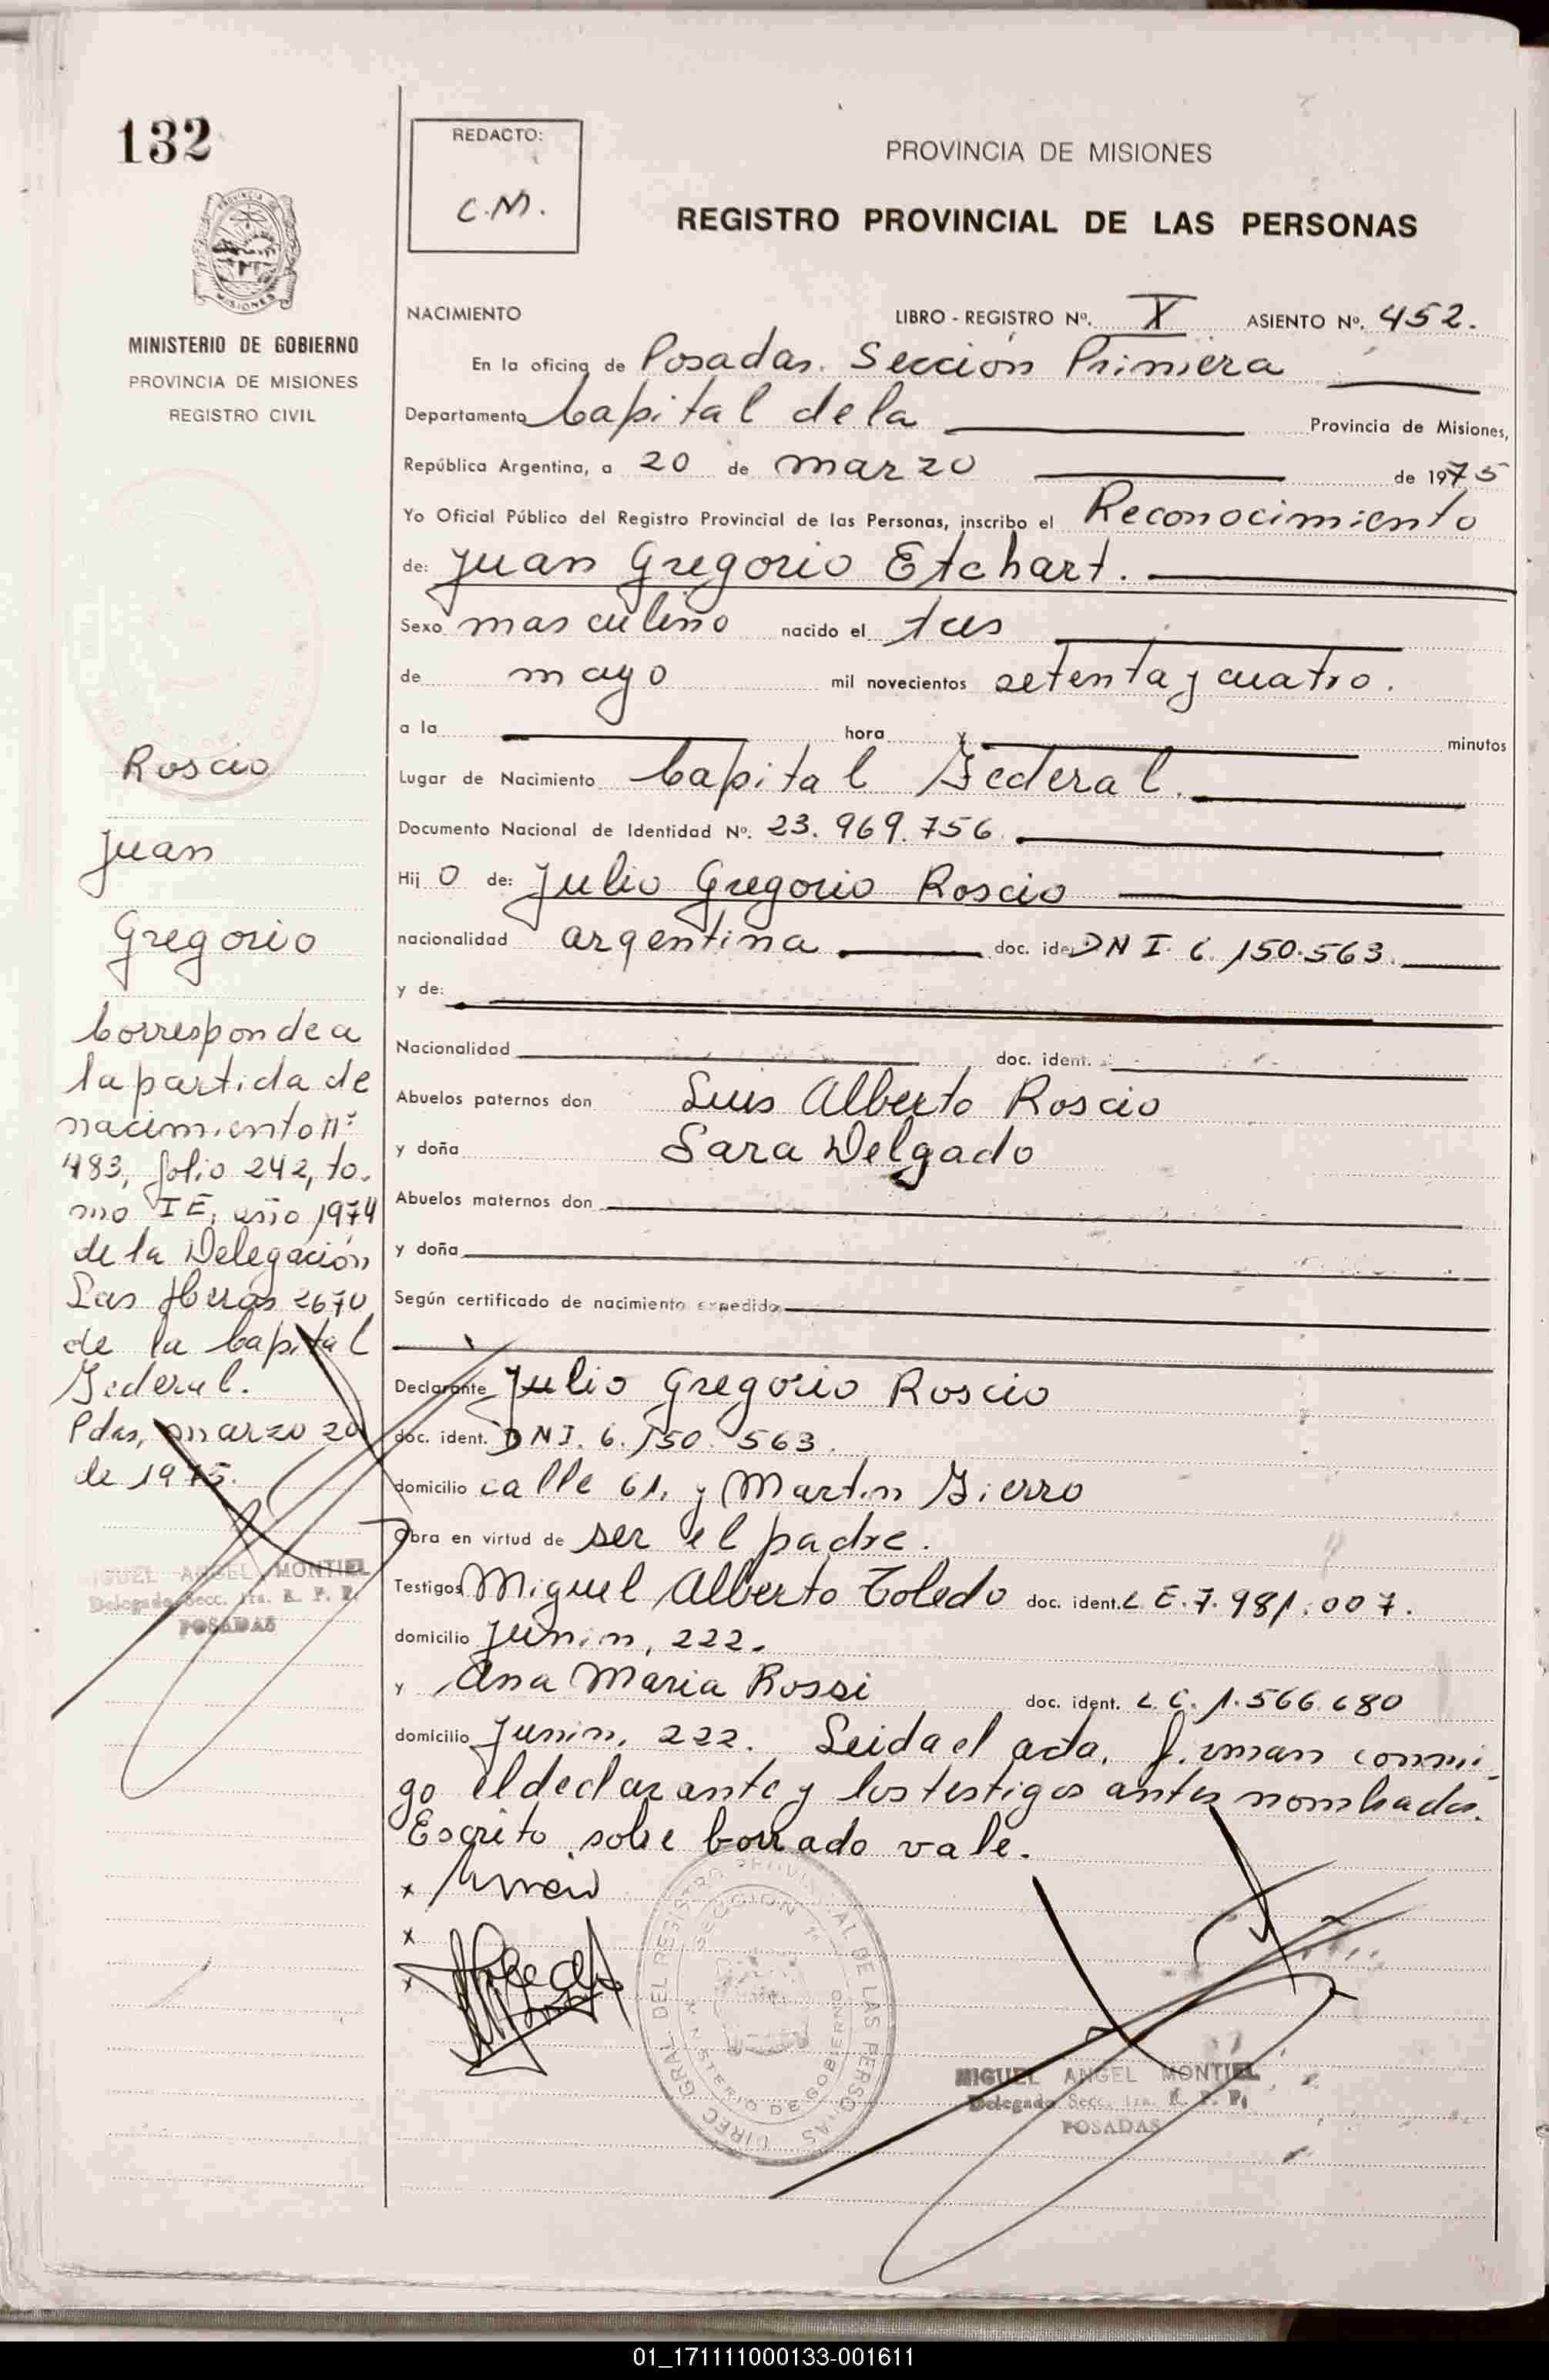 132
REDACTO:
C.M.
PROVINCIA DE MISIONES
REGISTRO PROVINCIAL DE LAS PERSONAS
MISIONES
MINISTERIO DE GOBIERNO
PROVINCIA DE MISIONES
REGISTRO CIVIL
NACIMIENTO
LIBRO - REGISTRO Nº. X ASIENTO Nº. 452.
En la oficina de Posadas. Sección Primera
Departamento Capital de la Provincia de Misiones,
República Argentina, a 20 de marzo de 1975
Yo Oficial Público del Registro Provincial de las Personas, inscribo el Reconocimiento
de: Juan Gregorio Etchart.
Sexo masculino nacido el tres
de mayo mil novecientos setenta y cuatro.
a la hora y minutos
Lugar de Nacimiento Capital Federal.
Documento Nacional de Identidad Nº. 23.969.756
Hij o de: Julio Gregorio Roscio
nacionalidad argentina doc. ide DNI. 6.150.563.
y de:
Nacionalidad doc. ident.
Abuelos paternos don Luis Alberto Roscio
y doña Sara Delgado
Abuelos maternos don
y doña
Según certificado de nacimiento expedido
Declarante Julio Gregorio Roscio
doc. ident. DNI. 6.150.563.
domicilio calle 61. y Martin Fierro
Obra en virtud de ser el padre.
Testigos Miguel Alberto Toledo doc. ident. L E. 7.981.007.
domicilio Junin, 222.
y Ana Maria Rossi doc. ident. L.C. 1.566.680
domicilio Junin, 222. Leida el acta, firman conmi-
go el declarante y los testigos antes nombrados.
Escrito sobre borrado vale.
x
x
x
Roscio
Juan
Gregorio
Corresponde a
la partida de
nacimiento nº
483, folio 242, to-
mo I E, año 1974
de la Delegación
Las Heras 2670
de la Capital
Federal.
Pdas, marzo 20
de 1975.
MIGUEL ANGEL MONTIEL
Delegado Secc. 1ra. R. P. P.
POSADAS
DIREC. GRAL DEL REGISTRO PROVINCIAL DE LAS PERSONAS
SECCION 1ª
MINISTERIO DE GOBIERNO
MIGUEL ANGEL MONTIEL
Delegado Secc. 1ra. R. P. P.
POSADAS
01_171111000133-001611